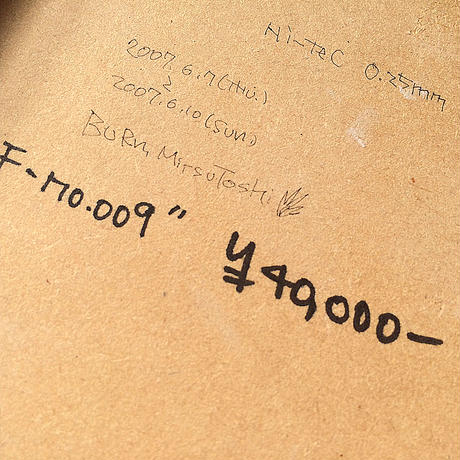 Hi-Tec 0.25mm
2007.6.7(THU.)
2
2007.6.10(SUN)
BURN, MITSUTOSHI
F-No.009"
¥40,000-